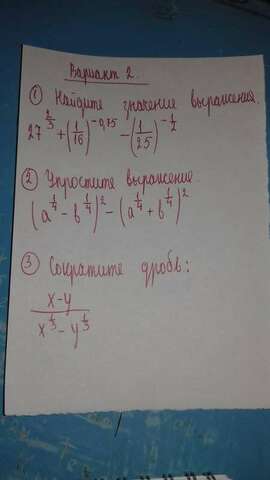 Вариант 2.
① Найдите значение выражения.
27^{2/3} + (1/16)^{-0,75} - (1/25)^{-1/2}
② Упростите выражение.
(a^{1/4} - b^{1/4})^2 - (a^{1/4} + b^{1/4})^2
③ Сократите дробь:
x-y
x^{1/3} - y^{1/3}